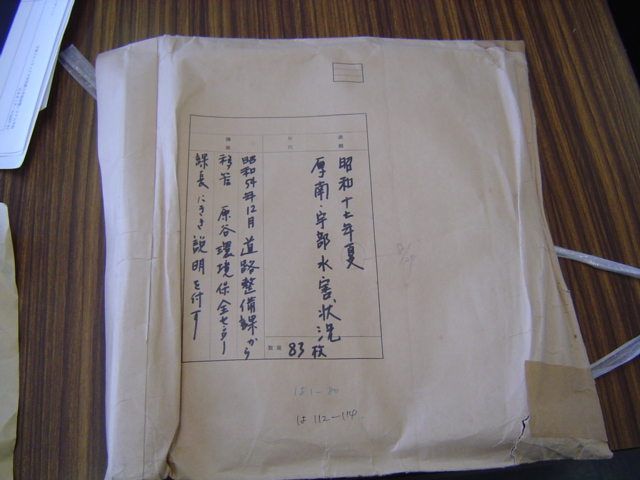 昭和十七年夏
厚南・宇部水害状況
83枚
昭和54年12月道路整備課から
移管 原谷環境保全センター
課長にきき説明を付す
は112-114